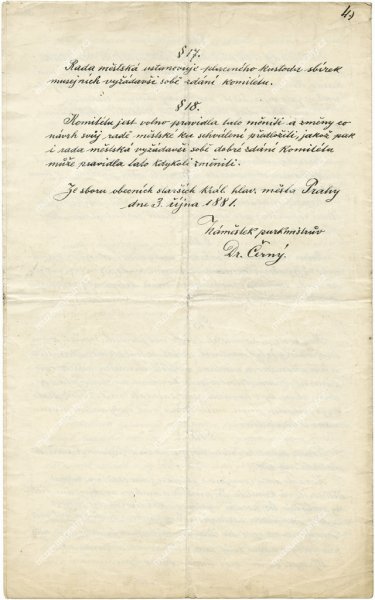 4)
§ 17.
Rada městská ustanovuje placeného kustoda sbírek
musejních vyžádavši sobě zdání komitétu.
§ 18.
Komitétu jest volno pravidla tato měniti a změny co
návrh svůj radě městské ku schválení předložiti, jakož pak
i rada městská vyžádavši sobě dobré zdání komitétu
může pravidla tato kdykoli změniti.
Ze sboru obecních starších král. hlav. města Prahy
dne 3. října 1881.
Náměstek purkmistrův
Dr. Černý.